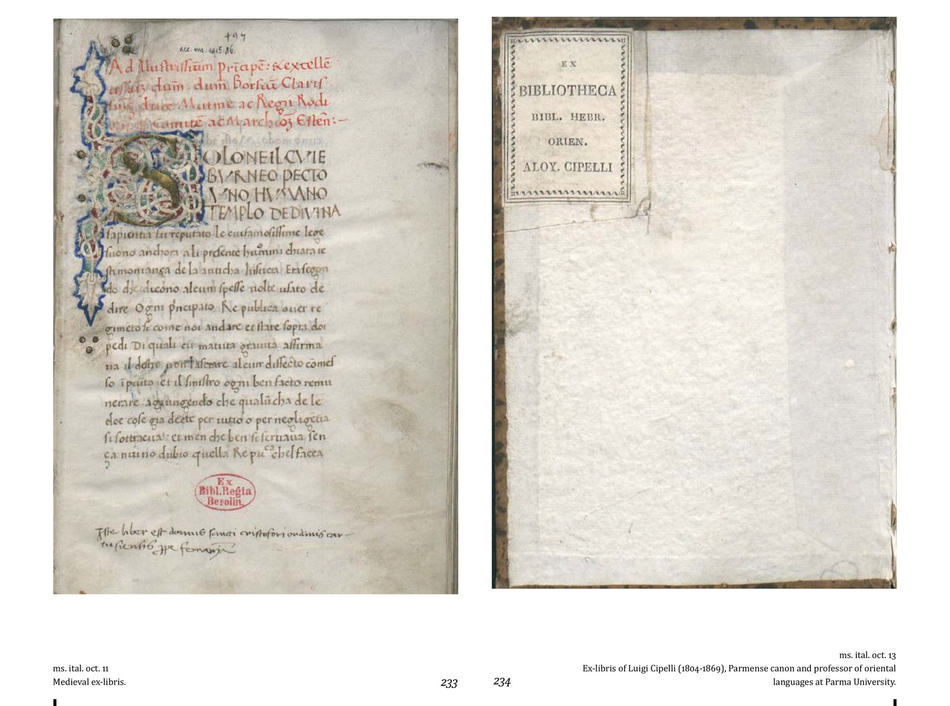 497
acc. ms. 1915. 86.
Ad Illustrissimum principē: & excellē
dūm dūm Borsiū Claris
duce Mutine ac Regii Rodi
comite ac Marchioɜ Esten:-
SOLONE IL CVI E
BVRNEO PECTO
VNO HVMANO
TEMPLO DE DIVINA
sapientia fu reputato le cui famosissime lege
suono anchora a li presente humini chiara te
stimonianza de la anticha Era segon
do di dicono alcuni spesse uolte usato de
dire Ogni principato Re publica ouer re
come noi andare et stare sopra doi
pedi Di quali cū matura grauita afferma
ua il destro alcun diffecto cōmes
so ī punito et il sinistro ogni ben facto remu
nerare agiungendo che qualūcha de le
doe cose gia decte per uitio o per negligētia
si sottraeua: et men che ben si seruaua sen
ça niuno dubio quella Re puca chel facea
Ex
Bibl. Regia
Berolin.
Iste liber est domus sancti cristofori ordinis car-
tusiensis ꝓpe ferrariā
EX
BIBLIOTHECA
BIBL. HEBR.
ORIEN.
ALOY. CIPELLI
ms. ital. oct. 11
Medieval ex-libris.
233
234
ms. ital. oct. 13
Ex-libris of Luigi Cipelli (1804-1869), Parmense canon and professor of oriental
languages at Parma University.